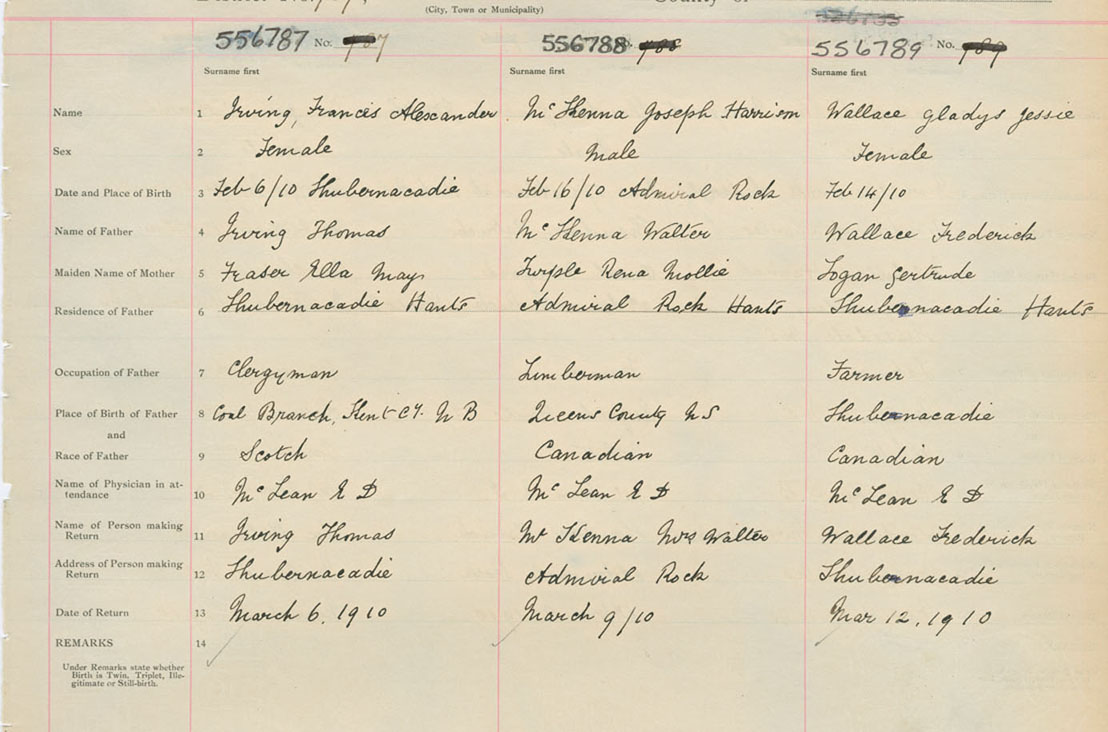 (City, Town or Municipality)
556787 No. 787 556788 No. 788 556789 No. 789
Surname first Surname first Surname first
Name 1 Irving, Francis Alexander McKenna Joseph Harrison Wallace Gladys Jessie
Sex 2 Female Male Female
Date and Place of Birth 3 Feb 6/10 Shubernacadie Feb 16/10 Admiral Rock Feb 14/10
Name of Father 4 Irving Thomas McKenna Walter Wallace Frederick
Maiden Name of Mother 5 Fraser Ella May Turple Rena Mollie Logan Gertrude
Residence of Father 6 Shubernacadie Hants Admiral Rock Hants Shubenacadie Hants
Occupation of Father 7 Clergyman Lumberman Farmer
Place of Birth of Father 8 Coal Branch, Kent Cy. N B Queens County N S Shubenacadie
and
Race of Father 9 Scotch Canadian Canadian
Name of Physician in at-
tendance 10 McLean E D McLean E D McLean E D
Name of Person making
Return 11 Irving Thomas McKenna Mrs Walter Wallace Frederick
Address of Person making
Return 12 Shubernacadie Admiral Rock Shubenacadie
Date of Return 13 March 6, 1910 March 9/10 Mar 12, 1910
REMARKS 14
Under Remarks state whether
Birth is Twin, Triplet, Ille-
gitimate or Still-birth.